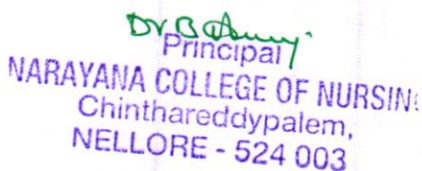 Dr B
Principal
NARAYANA COLLEGE OF NURSIN
Chinthareddypalem,
NELLORE - 524 003